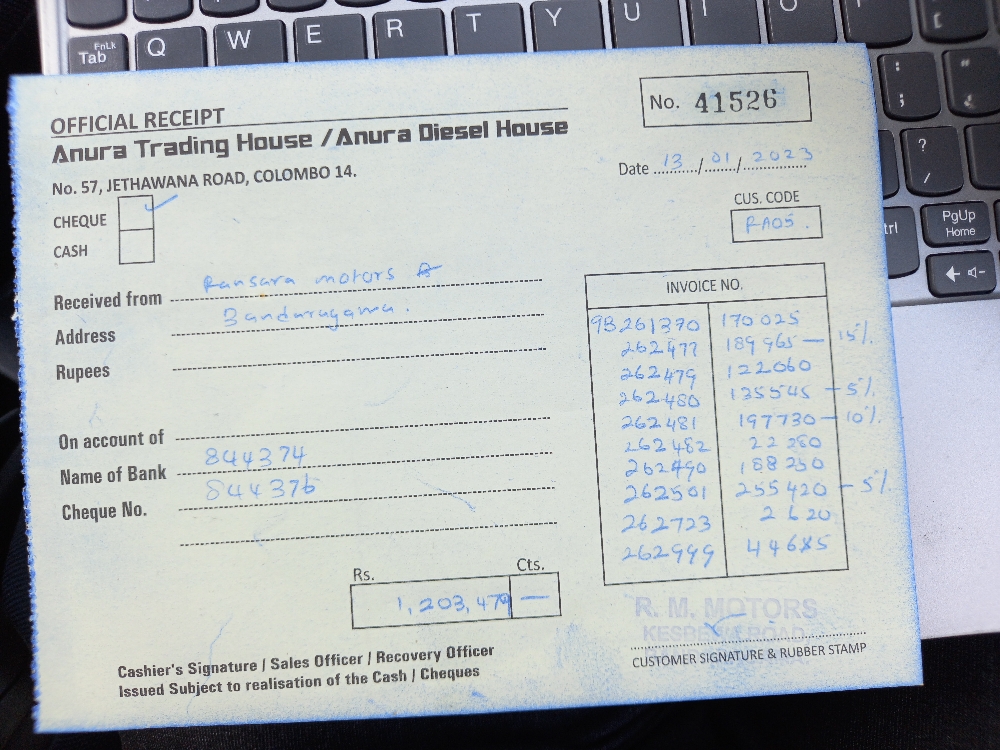 FnLk
Tab Q W E R T Y U I O
OFFICIAL RECEIPT
Anura Trading House / Anura Diesel House
No. 57, JETHAWANA ROAD, COLOMBO 14.
No. 41526
Date 13/01/2023
CUS. CODE
RA05.
CHEQUE ✓
CASH
Received from Ransara motors
Address Bandaragama.
Rupees
On account of
Name of Bank 844374
Cheque No. 844376
INVOICE NO.
9B261370 170025
262477 189965 — 15%
262479 122060
262480 135545 — 5%
262481 197730 — 10%
262482 22280
262490 188250
262501 255420 — 5%
262723 2620
262999 44685
Rs. Cts.
1,203,479 —
R. M. MOTORS
CUSTOMER SIGNATURE & RUBBER STAMP
Cashier's Signature / Sales Officer / Recovery Officer
Issued Subject to realisation of the Cash / Cheques
: ;
? /
PgUp
Home